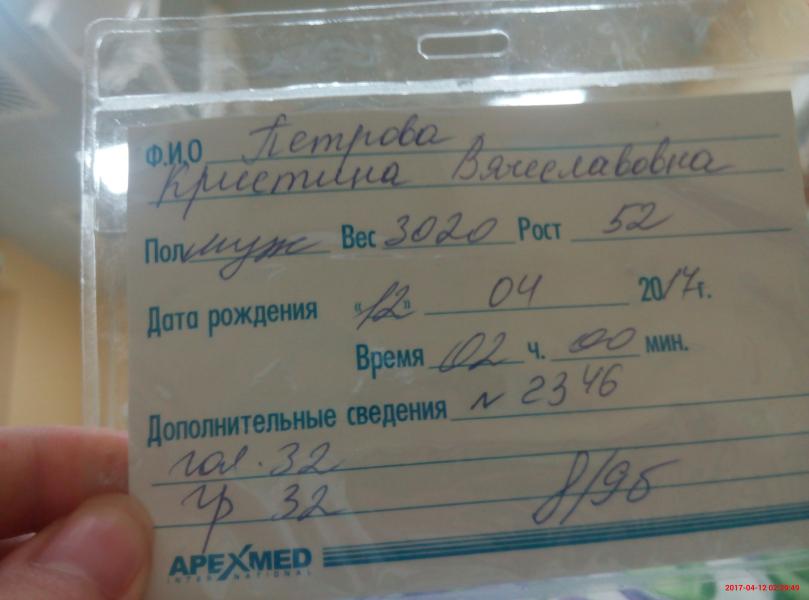 Ф.И.О Петрова
Кристина Вячеславовна
Пол муж Вес 3020 Рост 52
Дата рождения «12» 04 2017 г.
Время 02 ч. 00 мин.
Дополнительные сведения N 2346
гол. 32
гр 32 8/9б
APEXMED
INTERNATIONAL
2017-04-12 02:39:49